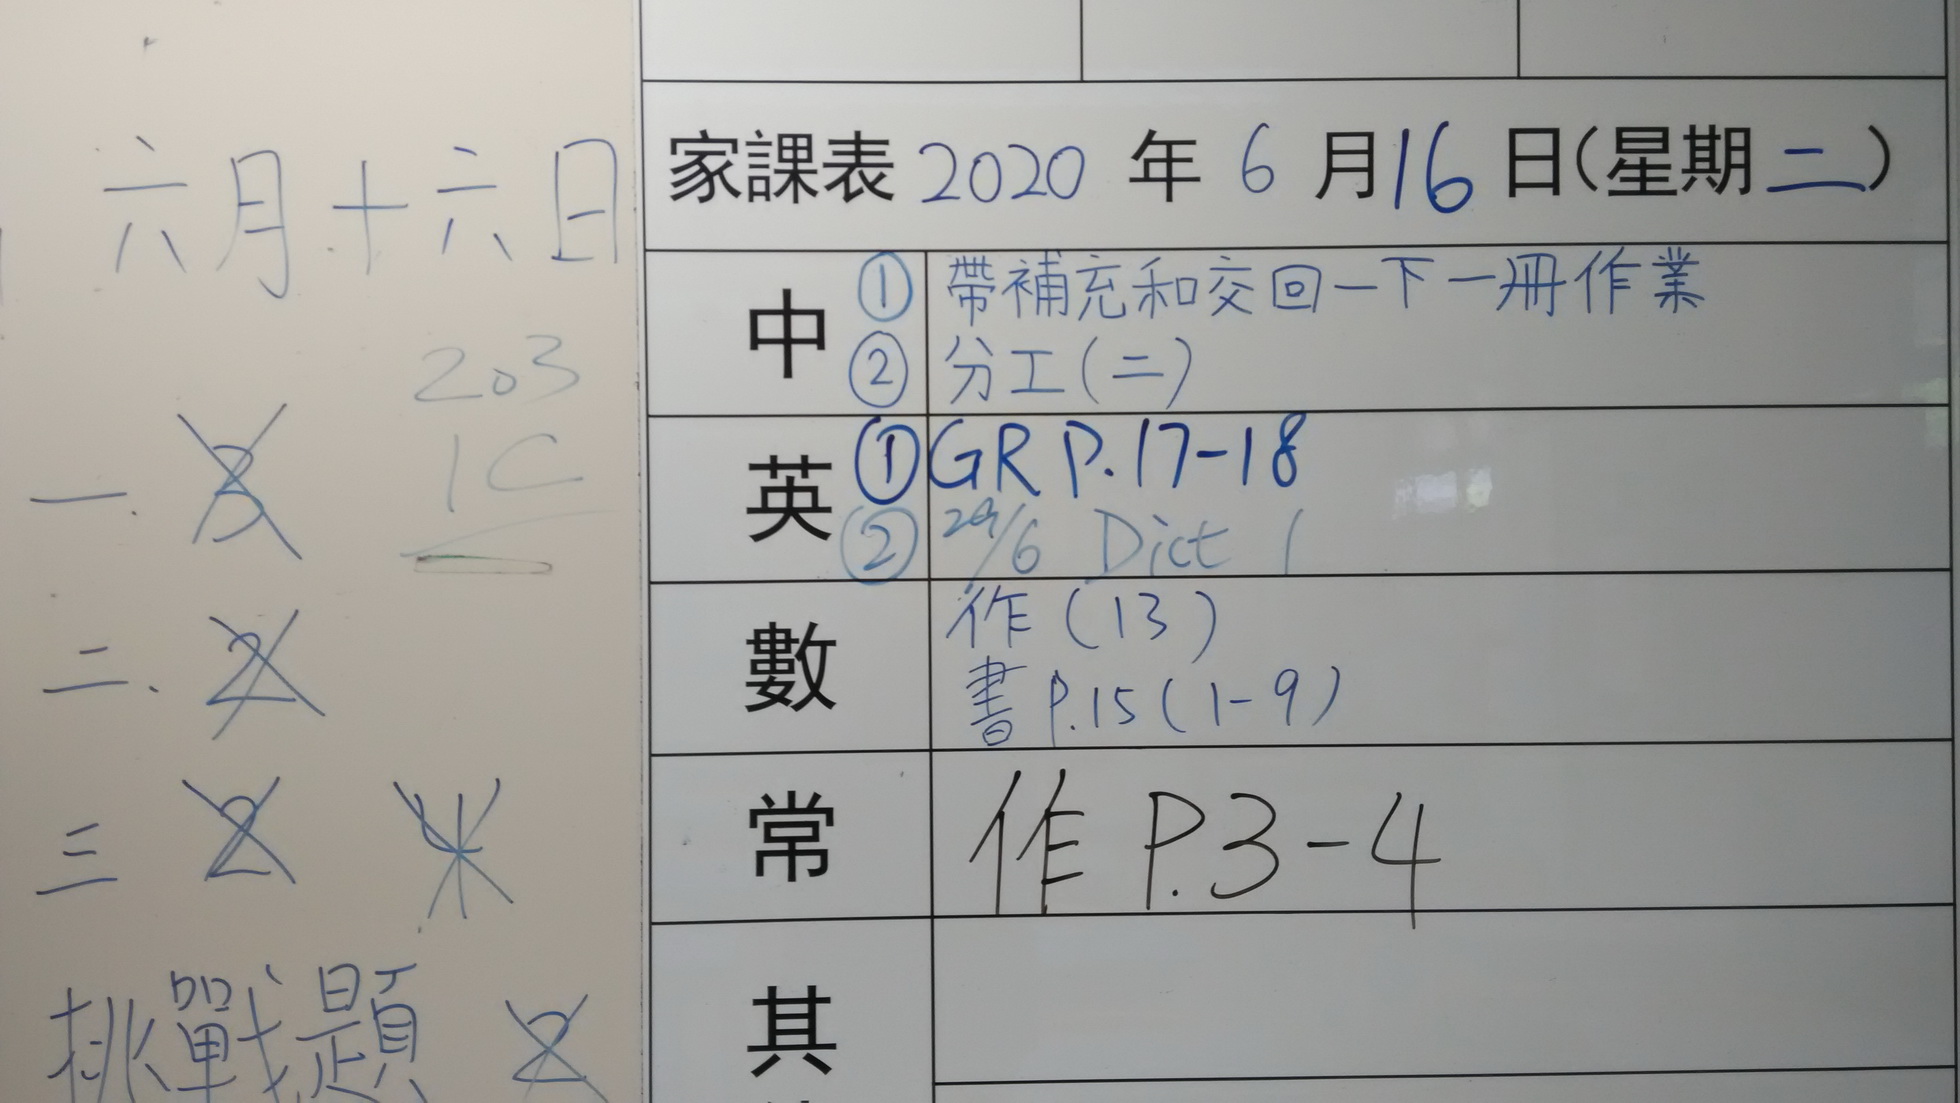 六月十六日
203
1C
一.
二、
三
挑戰題
家課表 2020 年 6 月 16 日(星期二)
中 ① 帶補充和交回一下一冊作業
② 分工(二)
英 ① GR P.17-18
② 29/6 Dict 1
數 作(13)
書 P.15(1-9)
常 作 P.3-4
其